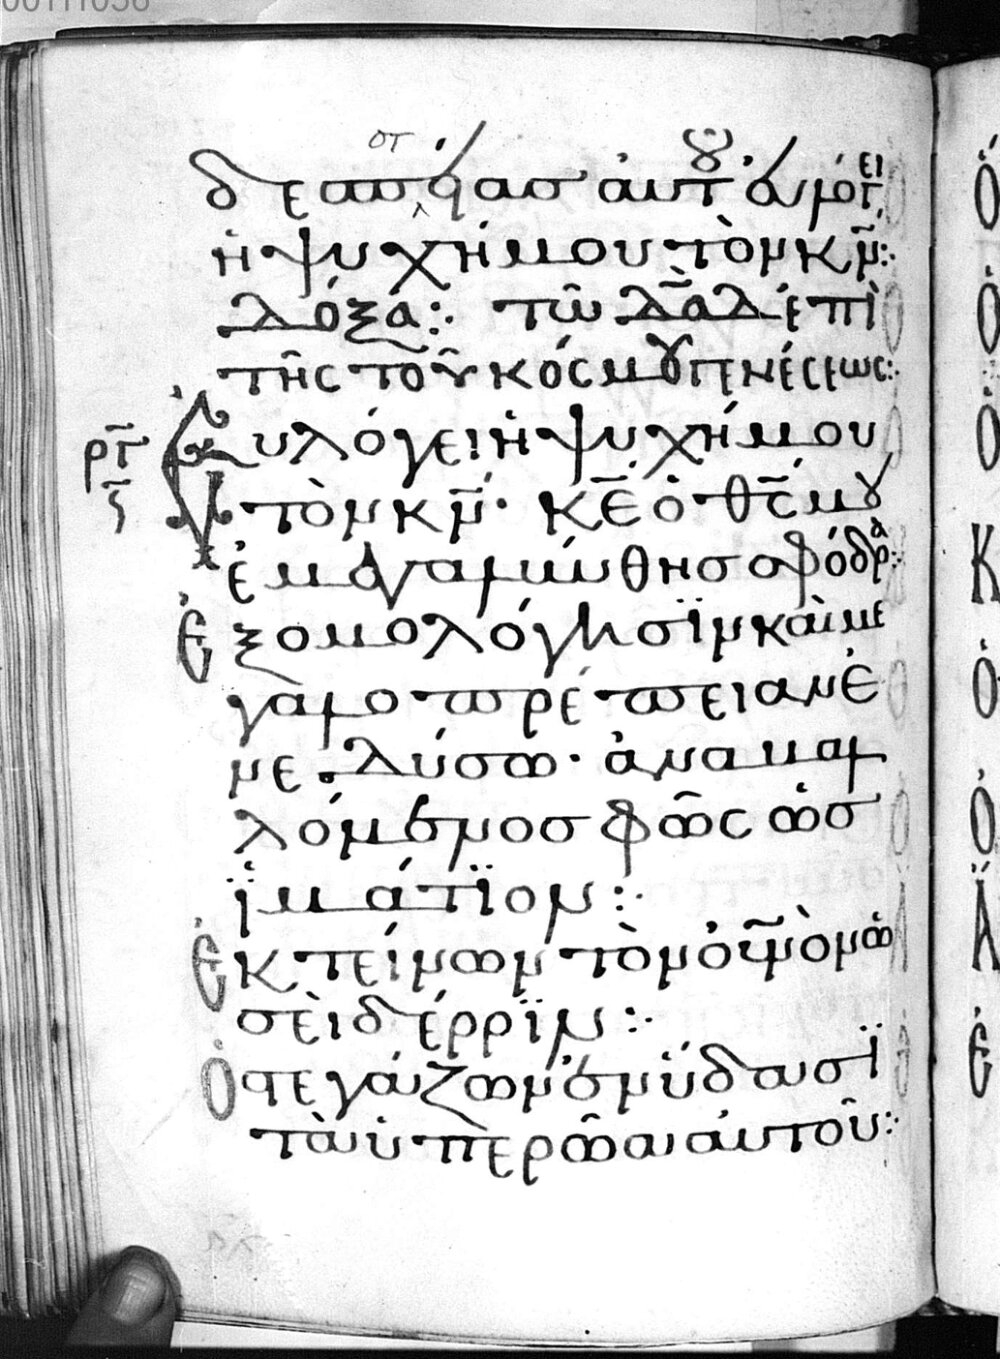 00111038
οτ
δεσποτείας αὐτοῦ εὐλόγει
ἡ ψυχή μου τὸν κ̅ν̅:
δόξα: τῶ δα̅δ ἐπὶ
τῆς τοῦ κόσμου γενέσεως:
Εὐλόγει ἡ ψυχή μου
ρ̅γ̅
τὸν κ̅ν̅· κ̅ε̅ ὁ θ̅ς̅ μου
ἐμεγαλύνθης σφόδρα:
Ἐξομολόγησϊν καὶ με
γαλοπρέπειαν ἐ
νεδύσω· ἀναβαλ
λόμενος φῶς ὡς
ϊμάτϊον:
Ἐκτείνων τὸν ο̅υ̅ν̅ὸν ὡ
σεὶ δέρρϊν:
Ὁ στεγάζων ἐν ὕδασϊ
τὰ ὑπερῶα αὐτοῦ: